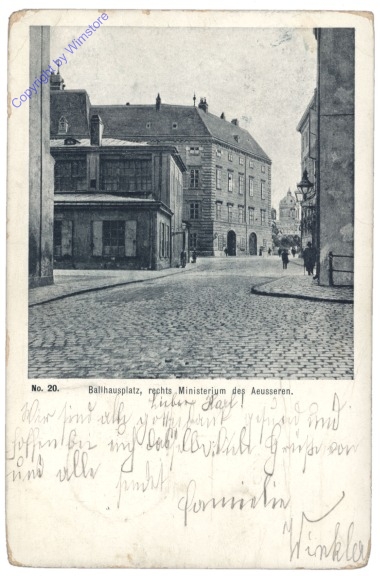 Copyright by Wimstore
No. 20. Ballhausplatz, rechts Ministerium des Aeusseren.
Lieber Karl!
Wir sind alle gottseidank gesund und
hoffen bei
Grüße von
und alle sendet
Familie
Winkler